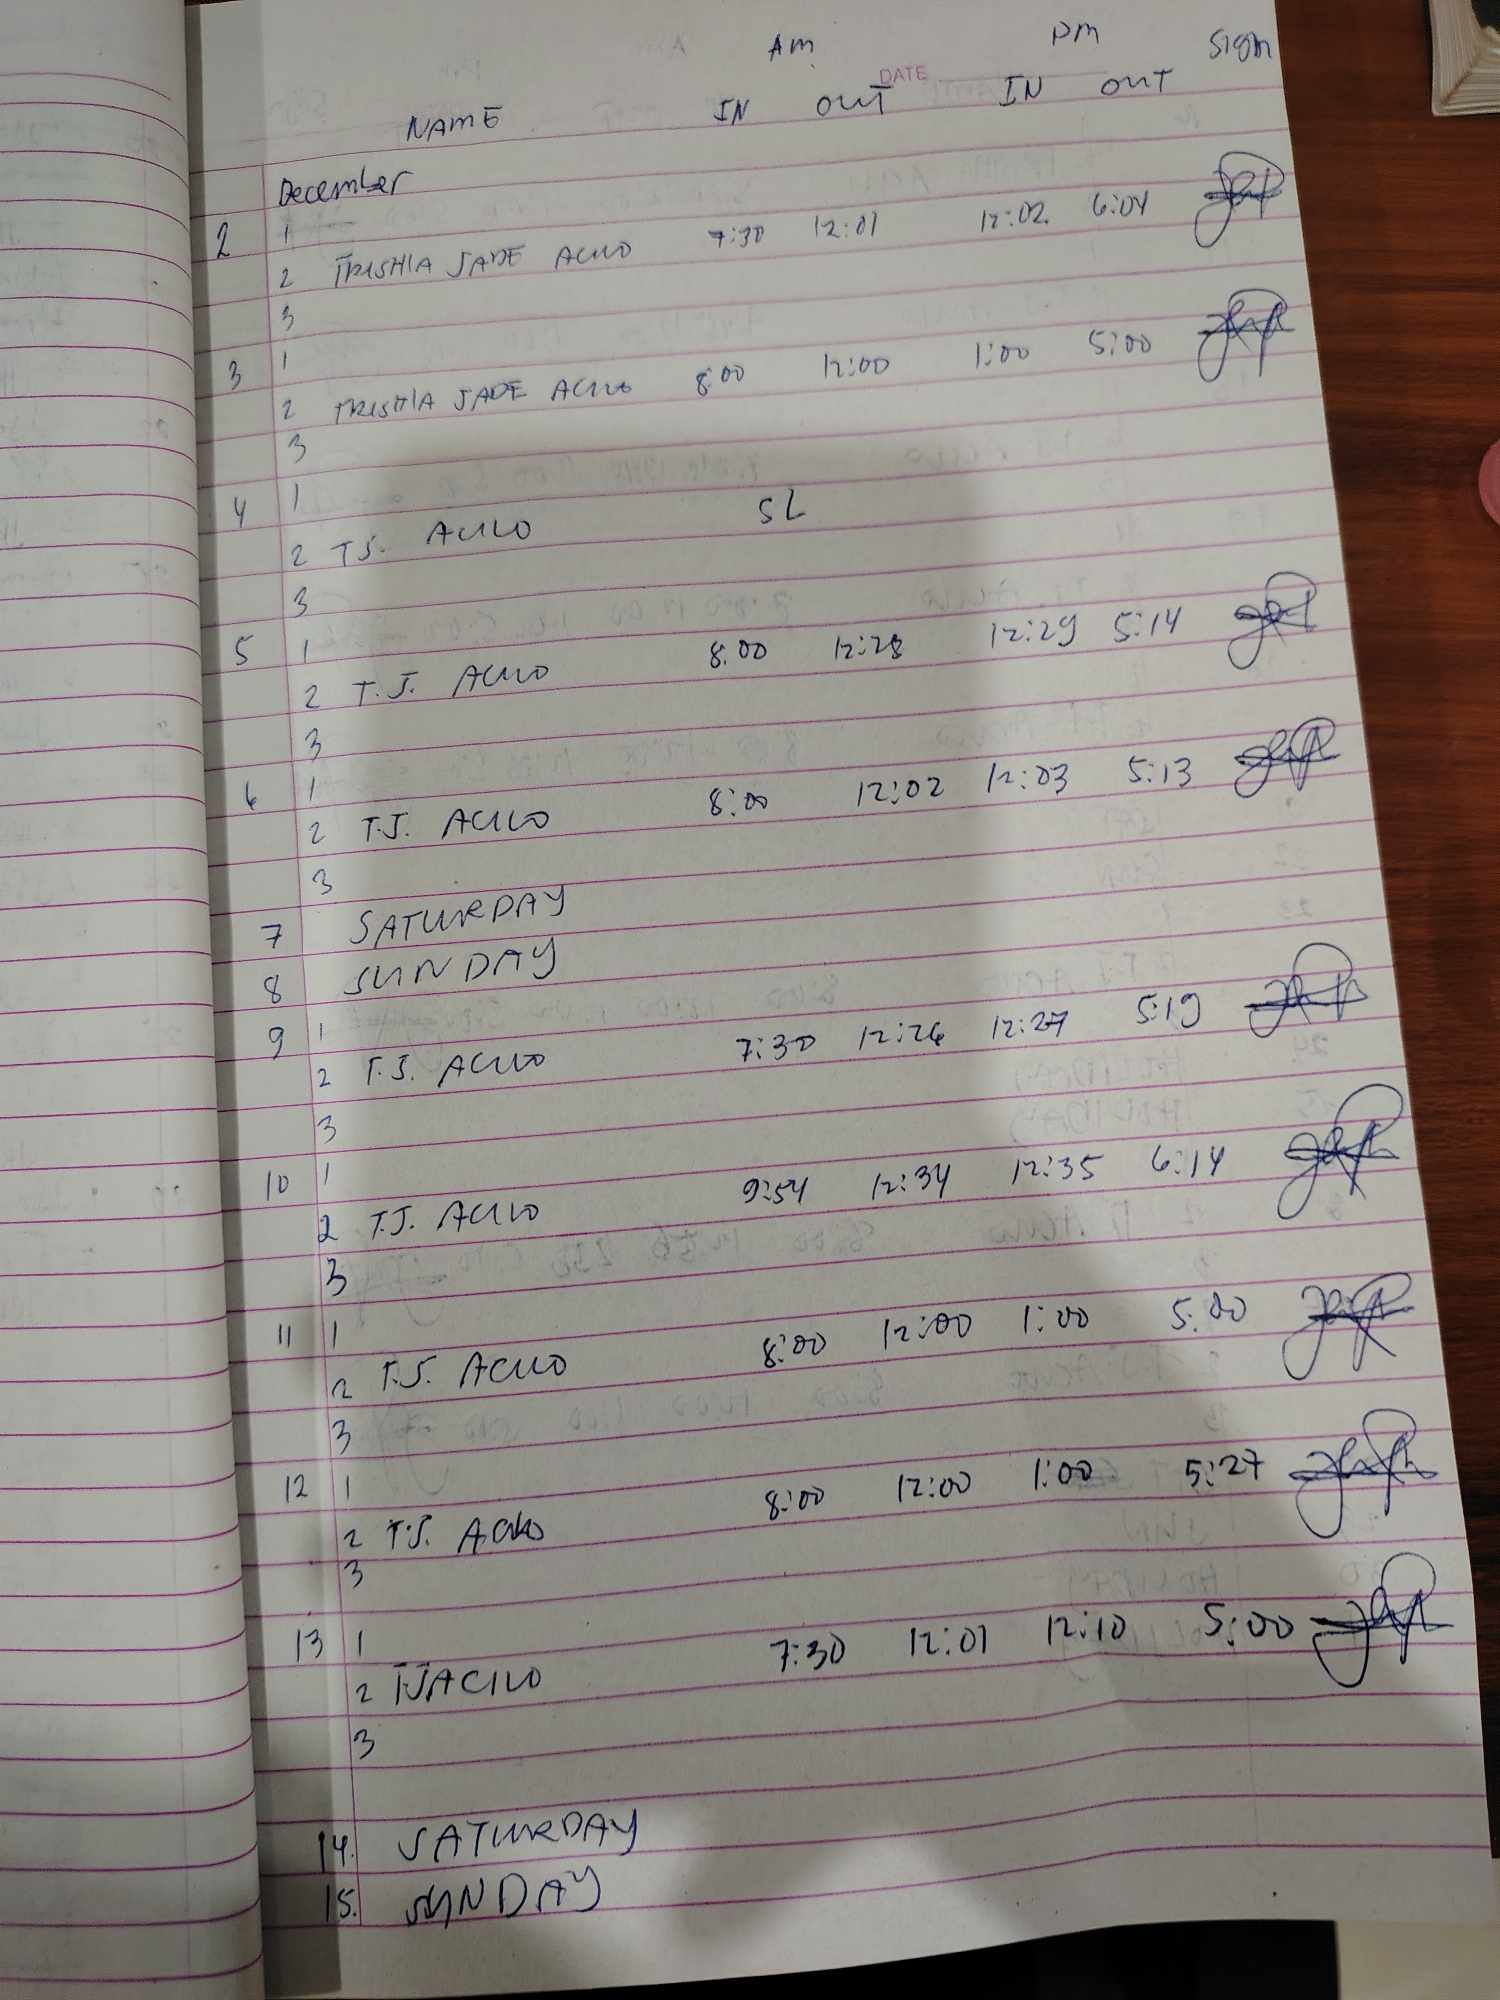 Am Pm Sign
DATE
NAME IN OUT IN OUT
December
2 1
2 TRISHIA JADE ACILO 7:30 12:01 12:02 6:04
3
3 1
2 TRISHIA JADE ACILO 8:00 12:00 1:00 5:00
3
4 1
2 T.J. ACILO SL
3
5 1
2 T.J. ACILO 8:00 12:28 12:29 5:14
3
6 1
2 T.J. ACILO 8:00 12:02 12:03 5:13
3
7 SATURDAY
8 SUNDAY
9 1
2 T.J. ACILO 7:30 12:26 12:27 5:19
3
10 1
2 T.J. ACILO 9:54 12:34 12:35 6:14
3
11 1
2 T.J. ACILO 8:00 12:00 1:00 5:00
3
12 1
2 T.J. ACILO 8:00 12:00 1:00 5:27
3
13 1
2 TJ ACILO 7:30 12:01 12:10 5:00
3
14. SATURDAY
15. SUNDAY